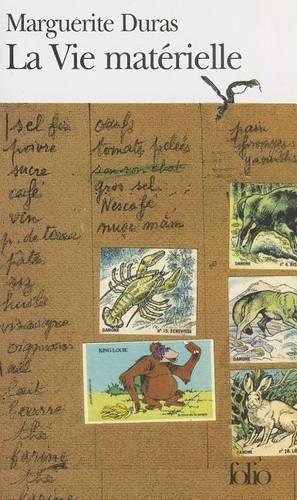 Marguerite Duras
La Vie matérielle
sel fin
poivre
sucre
café
vin
p. de terre
pâtes
riz
huile
vinaigre
oignons
ail
lait
beurre
thé
farine
thé
farine
œufs
tomates pelées
gros sel
Nescafé
nuoc mâm
pain
fromages
yaourths
DANONE
N° 15. ÉCREVISSE
KING LOUIE
DANONE
DANONE
DANONE
folio